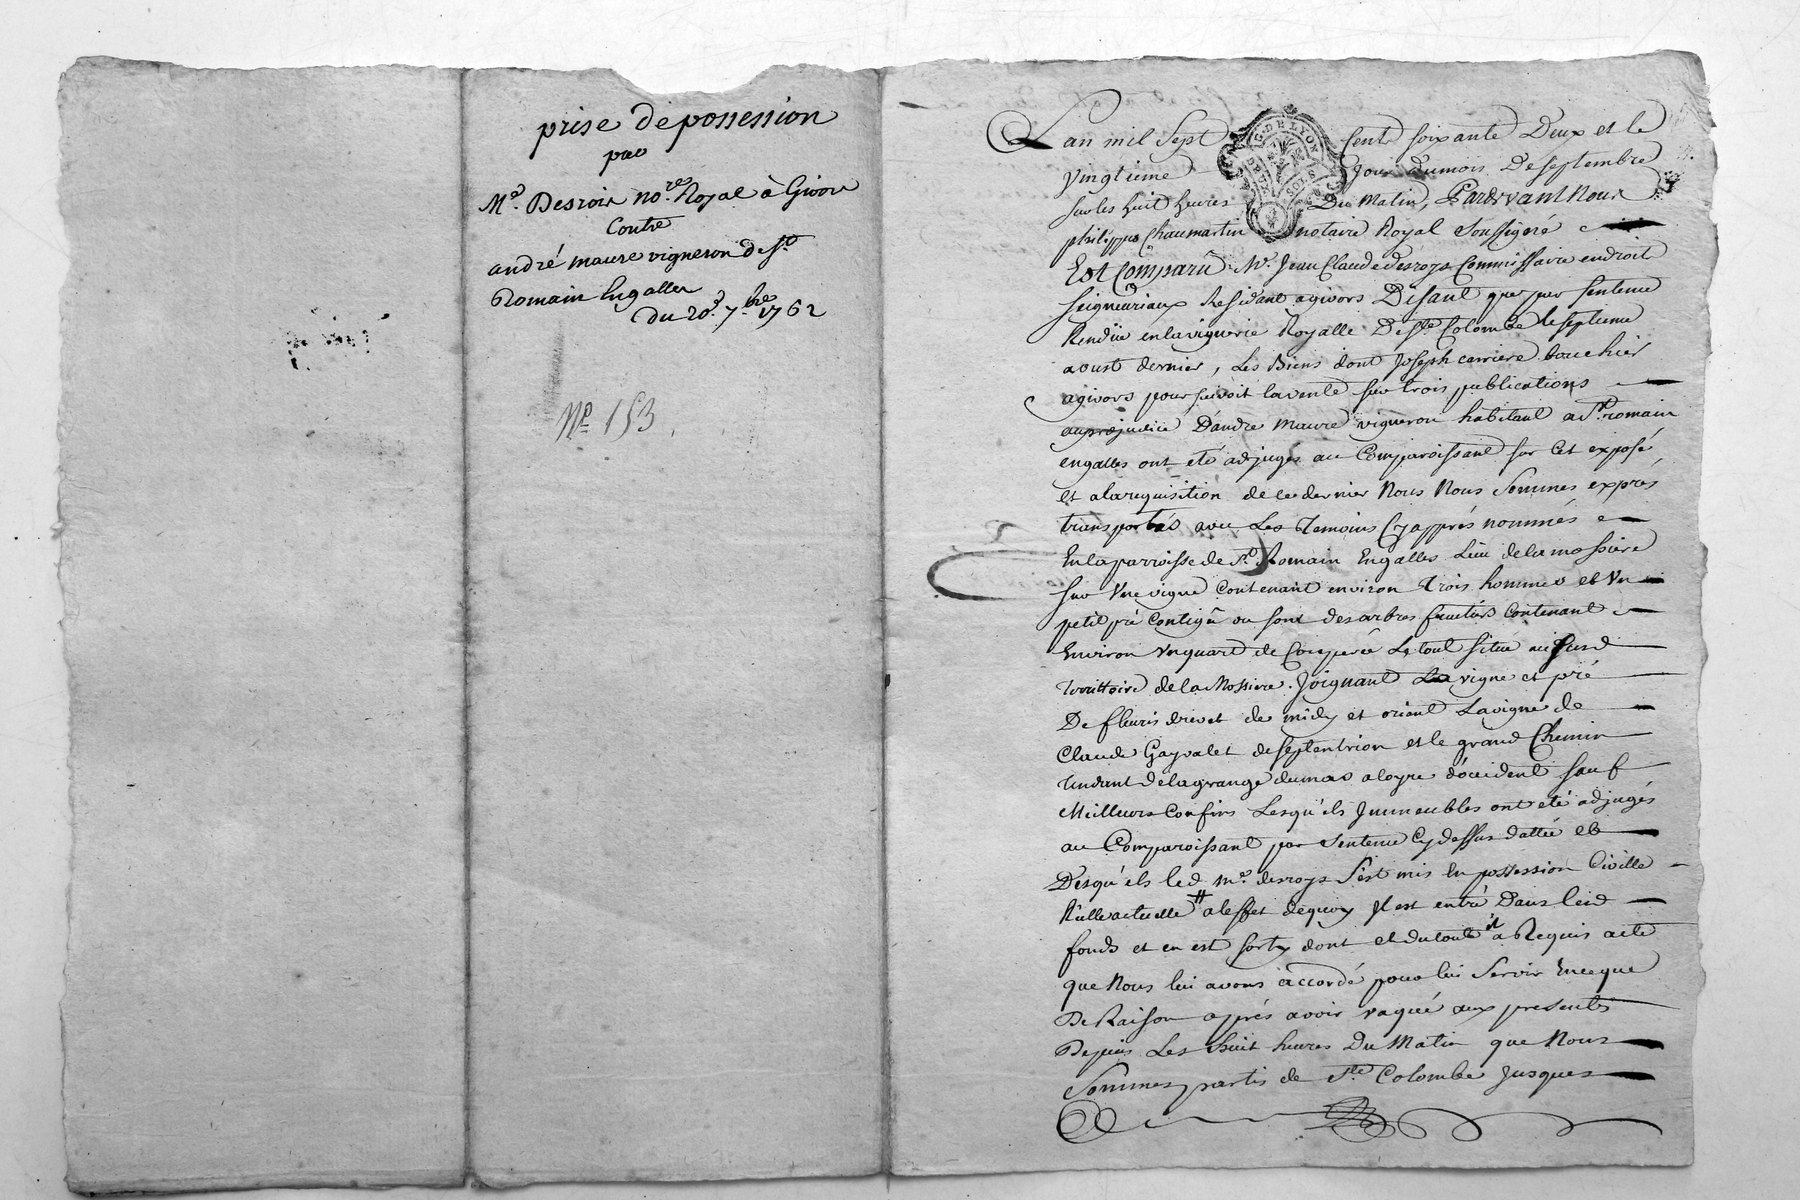 prise de possession
par
Me. Desrois no.re Royal à Givors
Contre
andré maure vigneron de St.
Romain Engalles
du 20e. 7.bre 1762
No 153
Lan mil Sept Cent soixante Deux et le
vingtieme Jour du mois De Septembre
sur les huit heures Du Matin, Pardevant Nous
G. DE LYON
DEUX SOLS
philippe Chaumartin notaire Royal Soussigné
Est Comparu Mr. Jean Claude desroys Commissaire en droit
seigneuriaux Residant a givors Disant que par sentence
Rendüe en la viguerie Royalle De Ste Colombe le septieme
aoust dernier, Les Biens dont Joseph carriere boucher
a givors poursuivoit la vente sur trois publications
au prejudice D'andré maure vigneron habitant a St. romain
engalles ont eté adjugés au Comparoissant sur Cet exposé
et a la requisition de ce dernier Nous Nous Sommes exprés
transportés avec Les Temoins Cy apprés nommés
En la parroisse de St. Romain Engalles Lieu de la mossiere
sur Une vigne Contenant environ Trois hommes et Un
petit pré Contigû ou sont des arbres fruitiers Contenant
Environ Un quart de Couperée Le tout situé au susd
Territtoire de la Mossiere. Joignant La vigne et pré
De fleuris drevet de midy et orient La vigne de
Claude Gayvalet de septentrion et le grand Chemin
Tendant de la grange dumas a loyre d'occident sauf
Meilleurs Confins Lesqu'els Immeubles ont eté adjugés
au Comparoissant par Sentence Cy dessus dattée et
Desqu'els led. me. desroys s'est mis En possession Civille
Réelle actuelle # a l'effet de quoy Il est entré Dans lesd
fonds et en est sorty dont et du tout il a Requis acte
que Nous lui avons accordé pour lui Servir Ence que
De Raison aprés avoir vaqué aux presentes
Depuis Les huit heures Du Matin que Nous
Sommes partis de Ste. Colombe Jusques